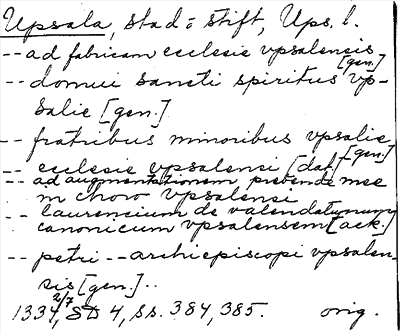 Upsala, stad = stift, Ups. l.
-- ad fabricam ecclesie vpsalensis
[gen.]
-- domui sancti spiritus vp-
salie [gen.]
-- fratribus minoribus vpsalie
[gen]
-- ecclesie vpsalensi [dat]
-- ad augmentationem prebende mee
in choro vpsalensi
-- laurencium de valendatunum
canonicum vpsalensem [ack.]
-- petri -- archiepiscopi vpsalen-
sis [gen.] --
1334 2/7, SD 4, ss. 384, 385. orig.